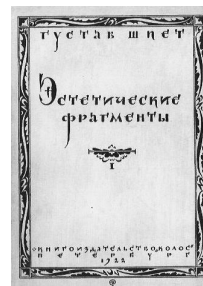 ГУСТАВ ШПЕТ
Эстетические
фрагменты
I
КНИГОИЗДАТЕЛЬСТВО „КОЛОС“
ПЕТЕРБУРГ
1922